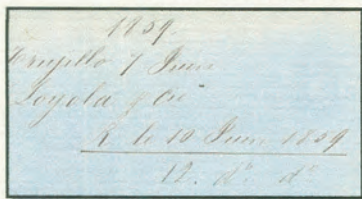 1859.
Trujillo 7 Juin
Loyola & Cie
R. le 10 Juin 1859
12. do. do